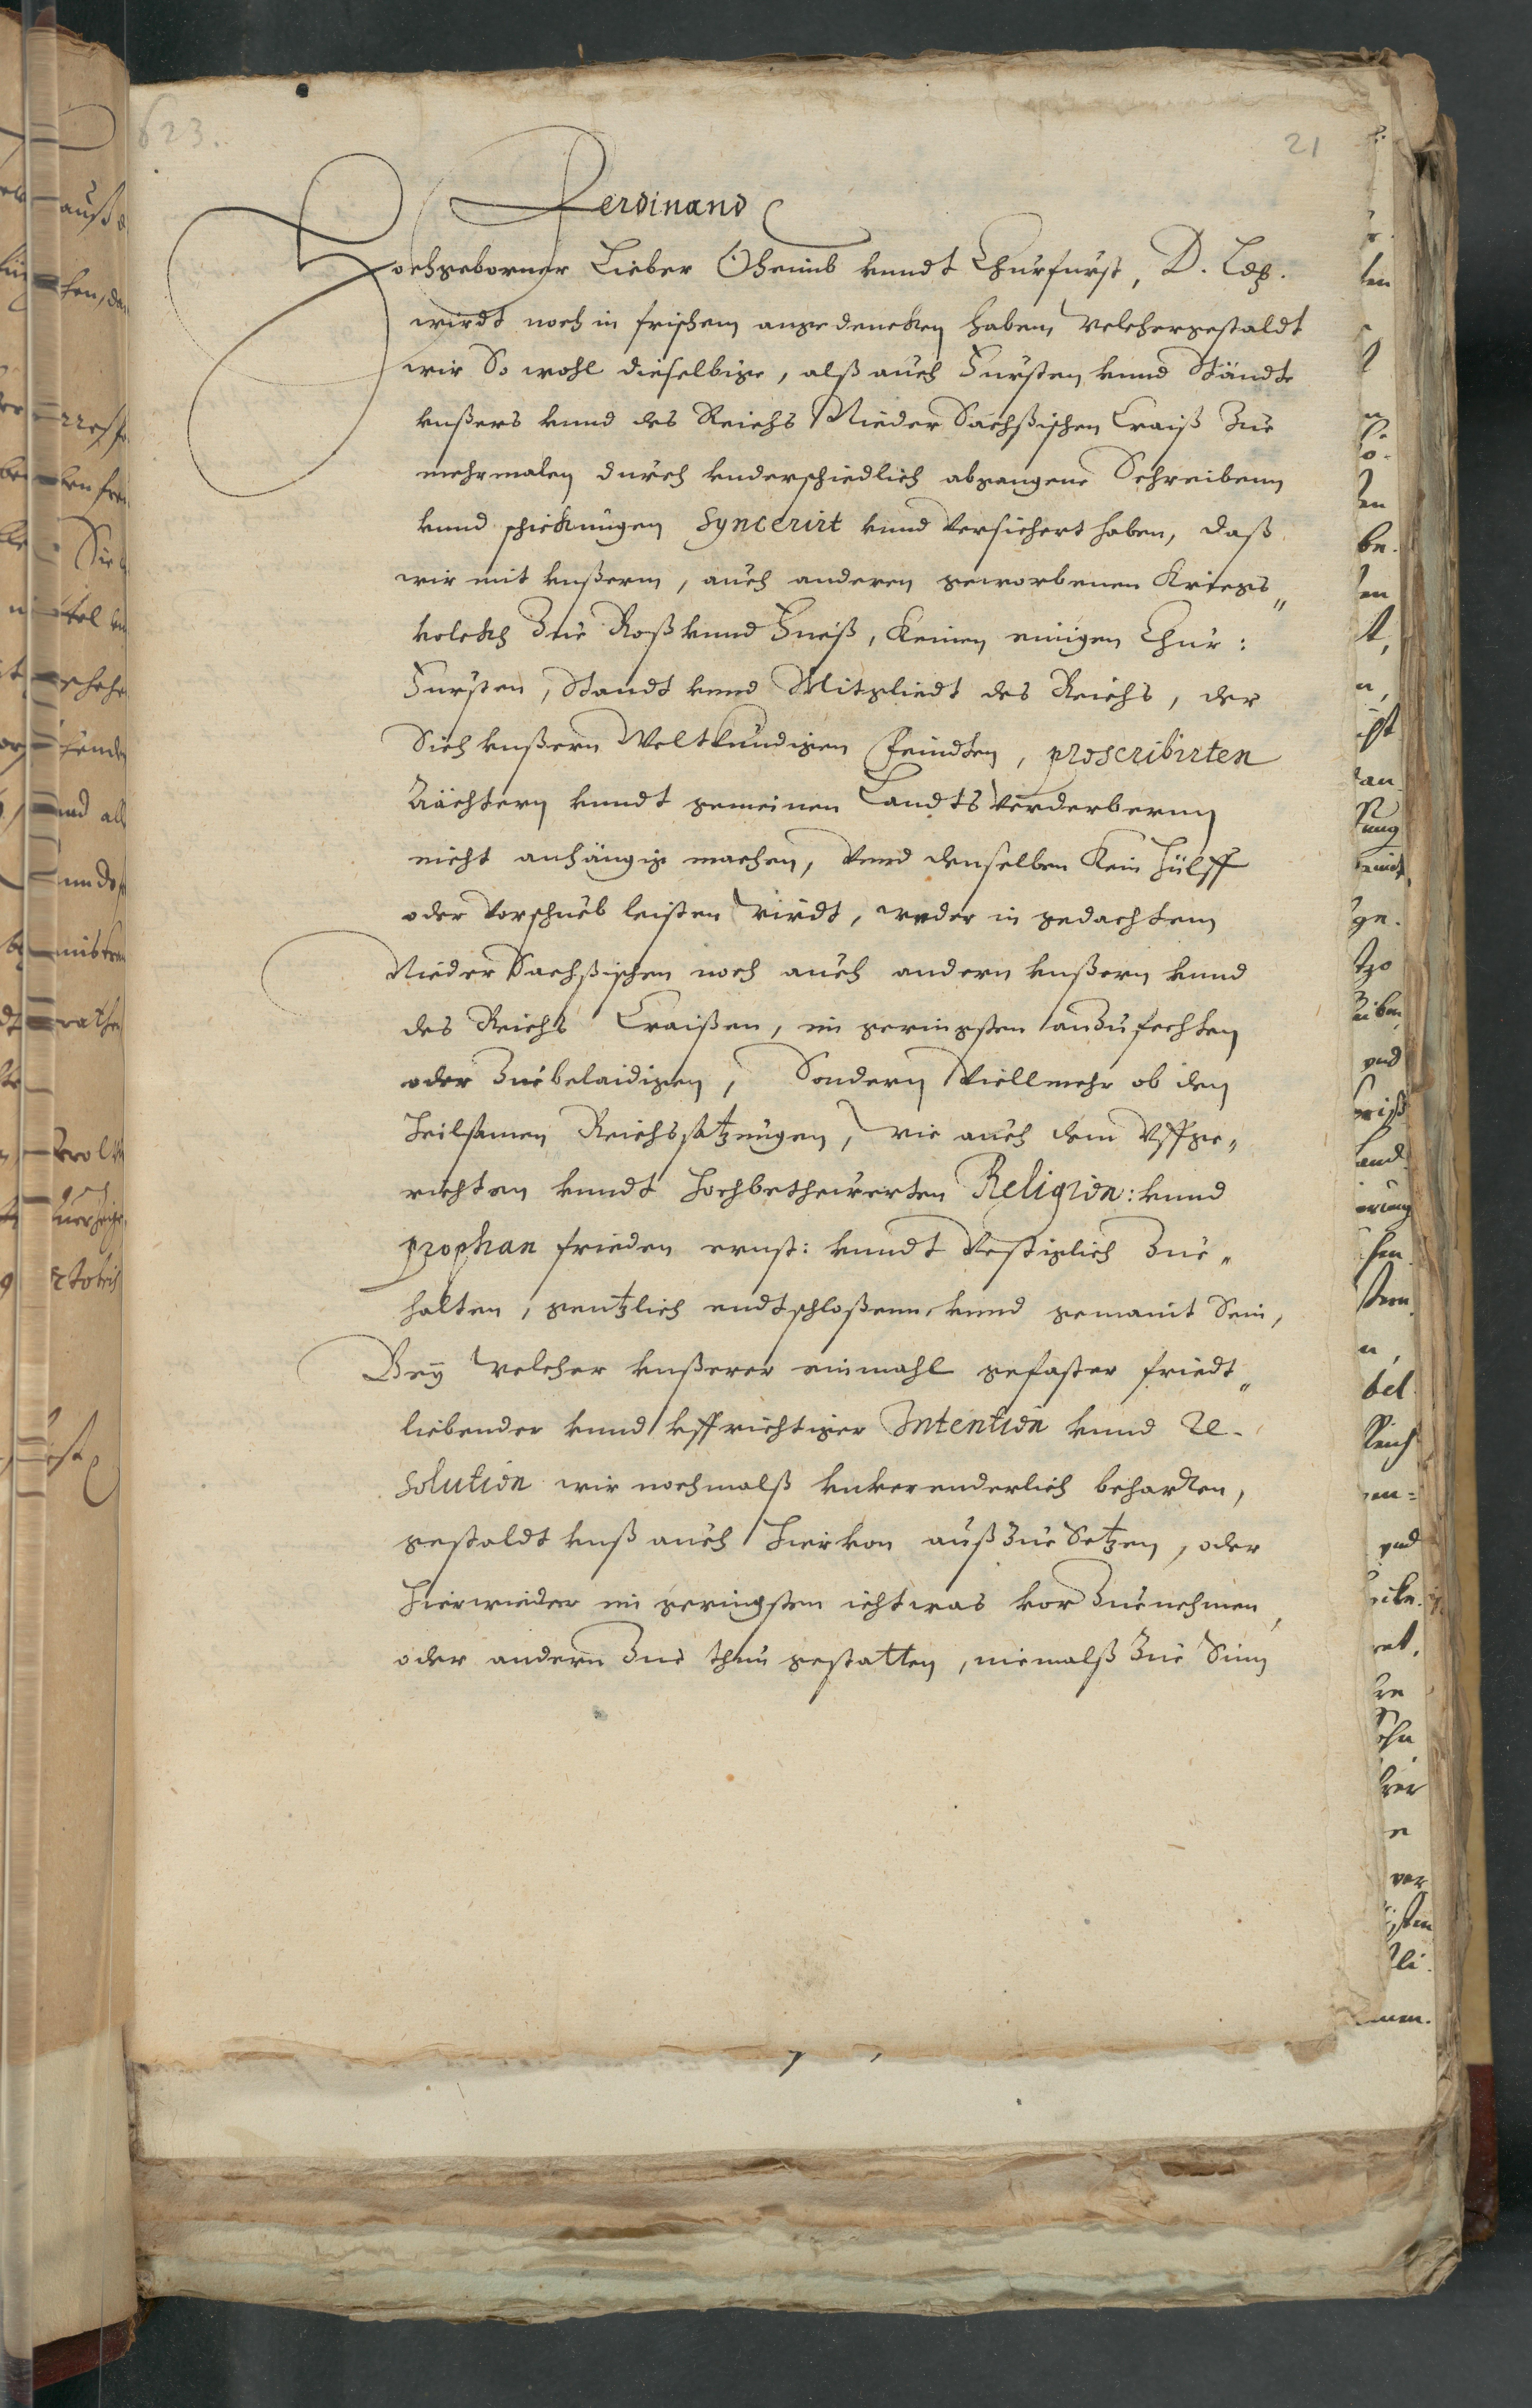 623.
21
Ferdinand
Hochgeborner Lieber Oheimb vnndt Churfurst, D. Ld.
wirdt noch in frischem angedencken haben, Welchergestaldt
wir So wohl dieselbige, alß auch Fursten vnnd Ständte
vnßers vnnd des Reichs Nieder Sächßischen Craiß Zue
mehrmalen durch vnderschiedlich abgangene Schreibenn
vnnd schickungen Syncerirt vnnd Versichert haben, daß
wir mit vnßerm, auch anderen geworbenen Kriegs„
volckh Zue Roß vnnd Fueß, Keinen einigen Chur:
Fursten, Standt vnnd Mitgliedt des Reichs, der
Sich vnßern Weltkundigen Feindten, proscribirten
Äächtern vnndt gemeinen Landts Verderbernn
nicht anhängig machen, Vnnd denselben Kein Hülff
oder Vorschueb leisten wirdt, weder in gedachtem
Nieder Sachßischen noch auch andern vnßern vnnd
des Reichs Craißen, im geringsten anZufechten
oder Zuebelaidigen, Sondern Viellmehr ob den
Heilsamen Reichssatzungen, Wie auch dem Vffge„
richten vnndt Hochbetheurerten Religion: vnnd
prophan frieden ernst: vnndt Vestiglich Zue„
halten, gentzlich endtschloßenn, vnnd gemaint Sein,
Bey Welcher vnßerer einmahl gefaster friedt„
liebender vnnd vffrichtiger Intention vnnd Re-
solution wir nochmalß vnverenderlich beharren,
gestaldt vnß auch Hiervon außZue Setzen, oder
Hierwieder im geringsten ichtwas vorZuenehmen,
oder andern Zue thun gestatten, niemalß Zue Sinn